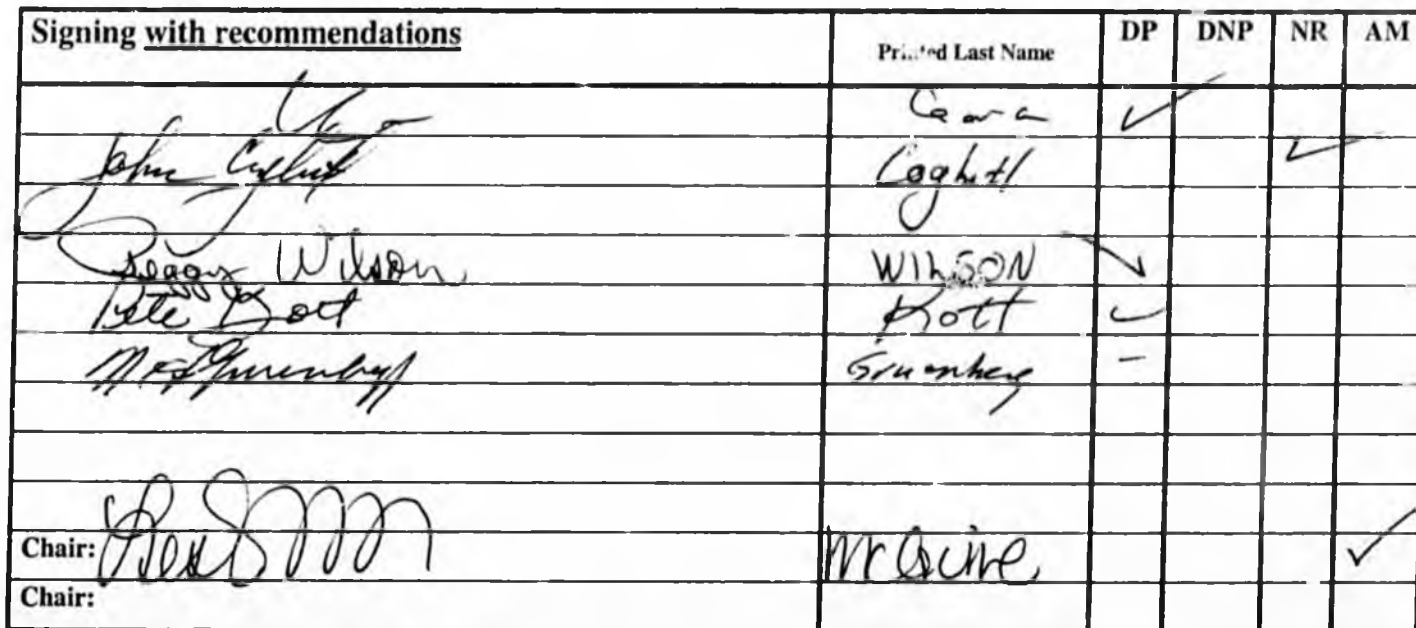 Signing with recommendations Printed Last Name DP DNP NR AM
✓
John Coghill Coghill ✓
Peggy Wilson WILSON ✓
Pete Kott Kott ✓
Gruenberg -
Chair: McGuire ✓
Chair: